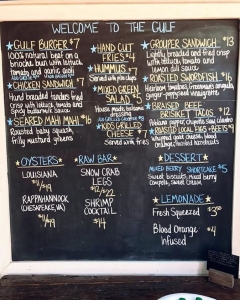 WELCOME TO THE GULF
GULF BURGER $7
100% natural beef on a
brioche bun with lettuce
tomato and garlic aioli
CHICKEN SANDWICH
Hand breaded tenders fried
crisp with lettuce and
spicy buttermilk sauce
SEARED MAHI MAHI $16
Roasted baby squash,
frilly mustard greens
HAND CUT
FRIES $4
HUMMUS
Served with chips
MIXED GREEN
SALAD
House made balsamic
dressing
KIDS GRILLED
CHEESE
Served with fries
GROUPER SANDWICH $13
Lightly breaded and fried crisp
with lettuce, tomato and
lemon dill sauce
ROASTED SWORDFISH $16
Heirloom tomatoes,
BRAISED BEEF
BRISKET TACOS $12
ROASTED LOCAL FIGS + BEETS $9
whipped goat cheese, blood
OYSTERS
LOUISIANA
RAPPAHANNOCK
(CHESAPEAKE, VA)
RAW BAR
SNOW CRAB
LEGS
SHRIMP
COCKTAIL
$14
DESSERT
MIXED BERRY SHORTCAKE $5
Sweet biscuits, mixed berry
compote, sweet cream
LEMONADE
Fresh Squeezed $3.50
Blood Orange $4
Infused